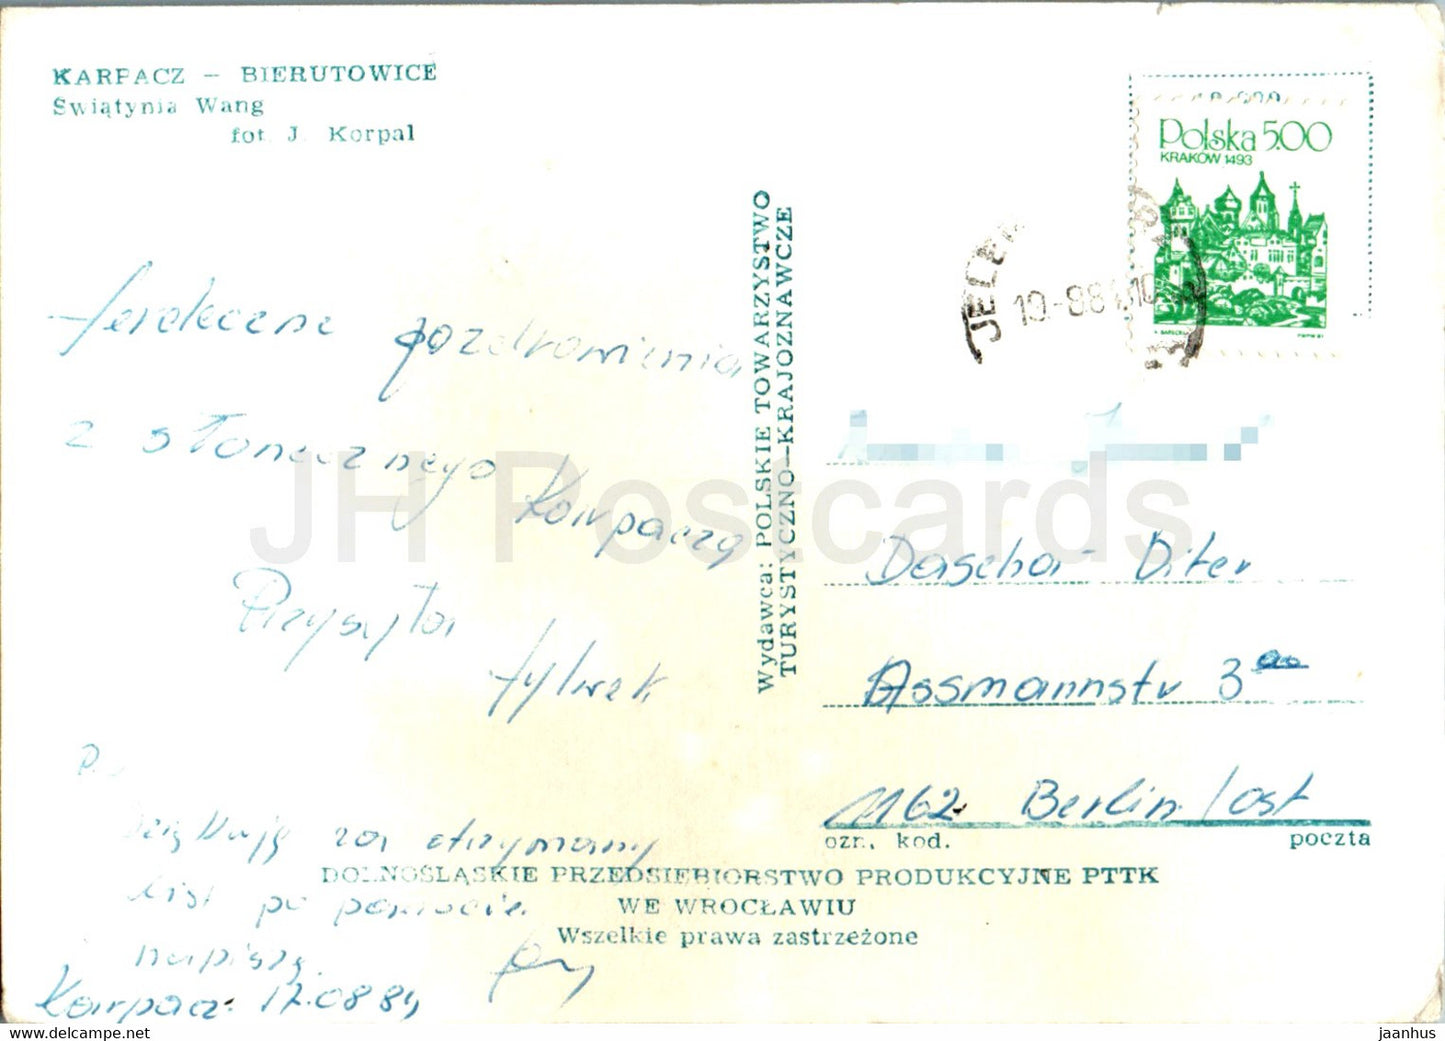 KARPACZ – BIERUTOWICE
Świątynia Wang
fot. J. Korpal
Serdeczne pozdrowienia
z słonecznego
Karpacza
Przysyła
Sylwek
P.
Dziękuję za otrzymany
list po powrocie
napiszę.
Karpacz 17.08.84
Wydawca: POLSKIE TOWARZYSTWO
TURYSTYCZNO–KRAJOZNAWCZE
Polska 5.00
KRAKÓW 1493
JELE
10.-8.84.10
Dascha- Diter
Assmannstr 3
1162 Berlin/ost
ozn. kod.
poczta
DOLNOŚLĄSKIE PRZEDSIĘBIORSTWO PRODUKCYJNE PTTK
WE WROCŁAWIU
Wszelkie prawa zastrzeżone
JH Postcards
www.delcampe.net
jaanhus